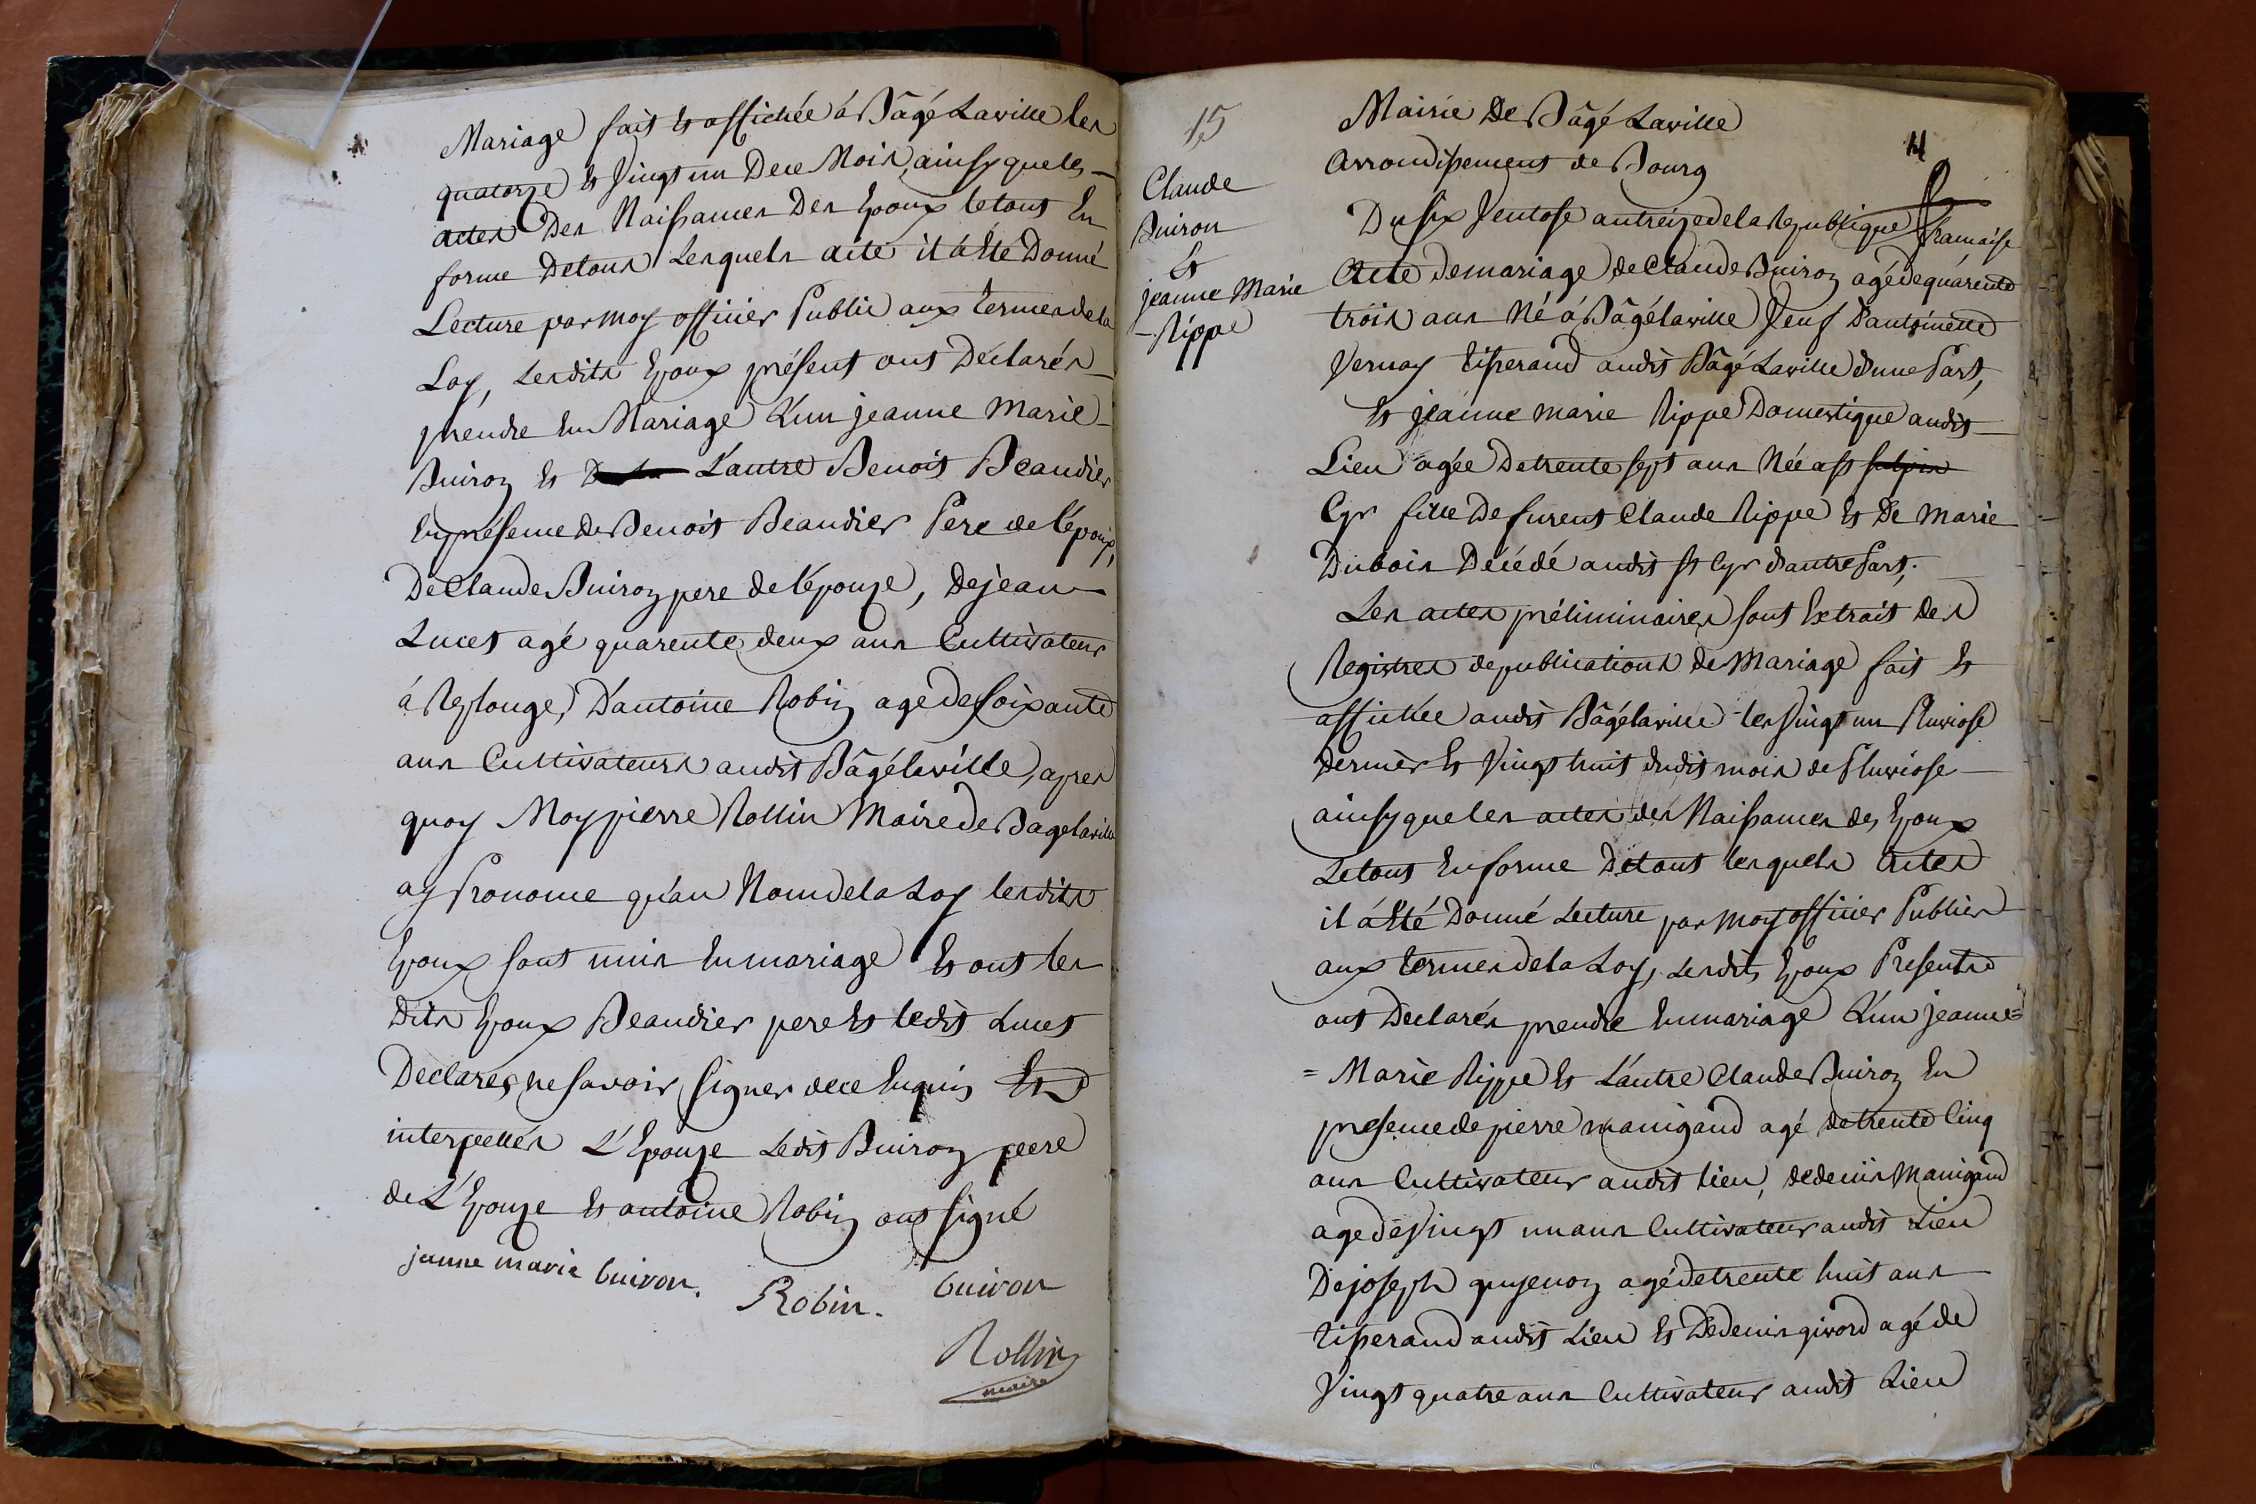 Mariage fait et affichée á Bâgé Laville les
quatorze et Vingt un De ce Mois, ainsy que les
actes Des Naissances Des Epoux le tout En
forme De tous Lesquels acte il á Eté Donné
Lecture par moy officier Public aux termes de la
Loy, Lesdits Epoux présent ont Déclarés
prendre En Mariage L'un jeanne Marie
Buiron et L'autre Benoit Beaudier
En présence De Benoit Beaudier Pere de l'époux,
De Claude Buiron pere de l'épouze, De jean
Lucet agé quarente deux ans Cultivateur
á Replonge, D'antoine Robin age de soixante
ans Cultivateurs audit Bâgélaville, apres
quoy Moy pierre Rollin Maire de Bagelaville
ay Prononce qu'au Nom de la Loy lesdits
Epoux sont unis En mariage Et ont les
Dits Epoux Beaudier pere et ledit Lucet
Déclarés ne savoir signer de ce Enquis Et
interpellés L'Epouze Ledit Buiron peere
de L'Epouze et antoine Robin ont signé
janne marie buiron.
Robin.
buiron
Rollin
maire
15
Claude
Buiron
Et
jeanne Marie
Rippe
Mairie De Bâgé Laville
Arrondissement de Bourg
Du six Ventose an treize de la Republique française
Acte de mariage de Claude Buiron agé de quárente
trois ans Né á Bâgélaville Veuf D'antoinette
Vernay tisserand audit Bâgé Laville d'une Part,
Et jeanne marie Rippe Domestique audit
Lieu agée De trente sept ans Née a st sulpis
Cyr fille De furent Claude Rippe et De Marie
Dubois Décédé audit st Cyr d'autre Part,
Les actes préliminaires sont Extrait Des
Registres de publications de Mariage fait et
affichée audit Bâgélaville les Vingt un Pluviose
Dernier et Vingt huit dudit mois de Pluviose
ainsy que les actes des Naissances des Epoux
Le tout En forme De tout lesquels actes
il á Eté Donné Lecture par moy officier Publics
aux termes de la Loy, Lesdits Epoux Presents
ont Declarés prendre En mariage L'un jeanne
= Marie Rippe Et L'autre Claude Buiron En
presence de pierre manigand agé de trente Cinq
ans Cultivateur audit lieu, de denis Manigand
age de Vingt un ans Cultivateur audit Lieu
De joseph guyenon agé de trente huit ans
tisserand audit Lieu et De denis givord agé de
Vingt quatre ans Cultivateur audit Lieu